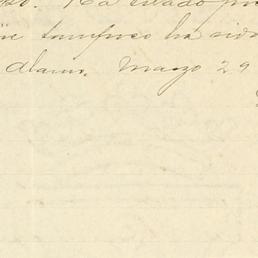 so. Ha estado
tampoco ha sido
Alamo. Marzo 29